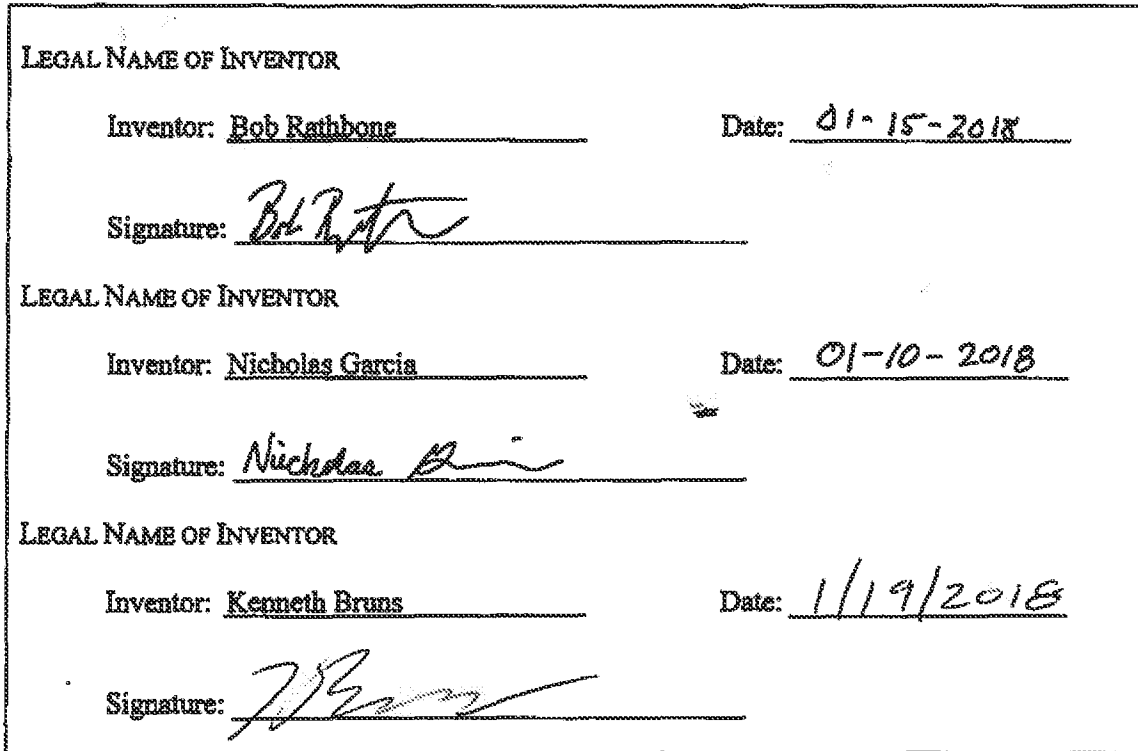 LEGAL NAME OF INVENTOR
Inventor: Bob Rathbone Date: 01-15-2018
Signature: Bob
LEGAL NAME OF INVENTOR
Inventor: Nicholas Garcia Date: 01-10-2018
Signature: Nicholas
LEGAL NAME OF INVENTOR
Inventor: Kenneth Bruns Date: 1/19/2018
Signature: